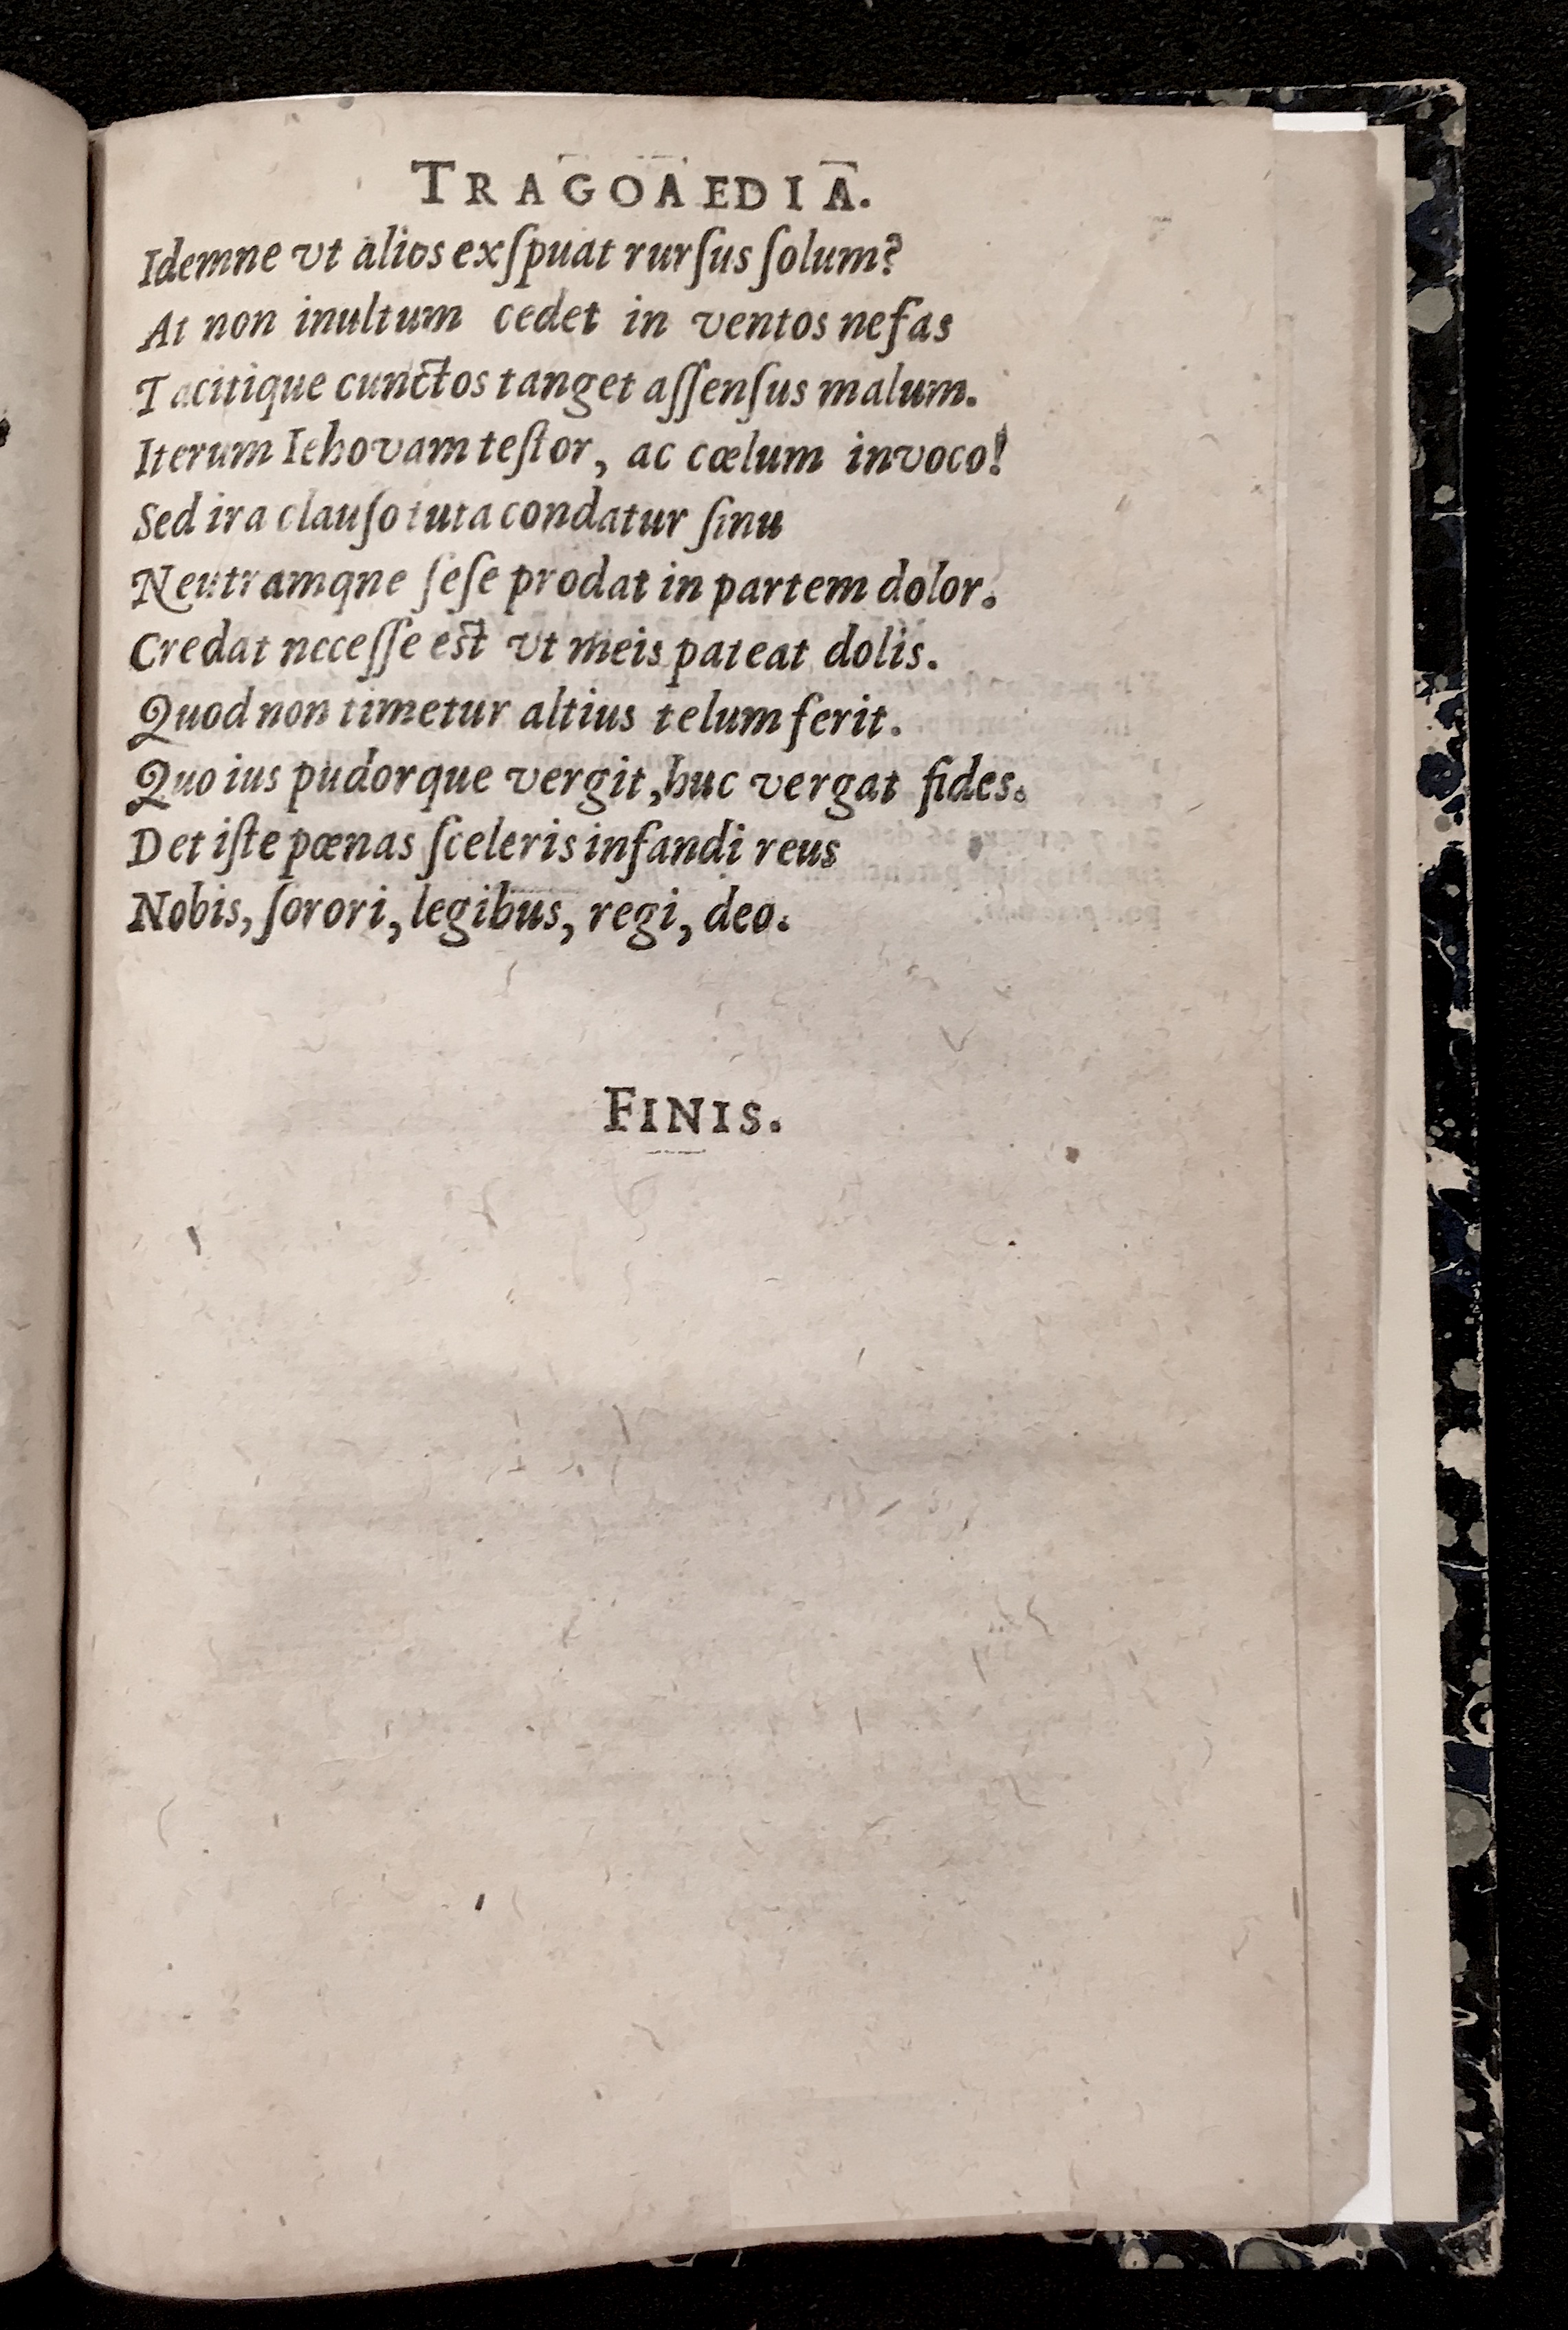 TRAGOAEDIA.
Idemne vt alios exſpuat rurſus ſolum?
At non inultum cedet in ventos nefas
Tacitique cunctos tanget aſſenſus malum.
Iterum Iehovam teſtor, ac cœlum invoco!
Sed ira clauſo tuta condatur ſinu
Neutramqne ſeſe prodat in partem dolor.
Credat neceſſe est vt meis pateat dolis.
Quod non timetur altius telum ferit.
Quo ius pudorque vergit, huc vergat fides.
Det iſte pœnas ſceleris infandi reus
Nobis, ſorori, legibus, regi, deo.
FINIS.